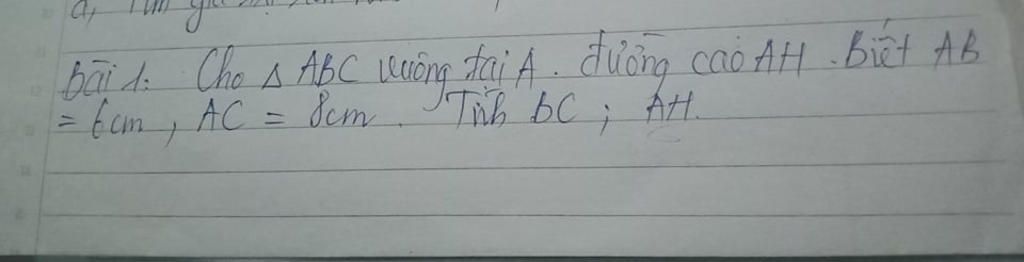 a,
bài 1: Cho Δ ABC vuông tại A. đường cao AH. Biết AB
= 6cm, AC = 8cm. Tính bC; AH.